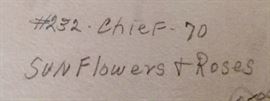 #232 · Chief - 70
SunFlowers & Roses